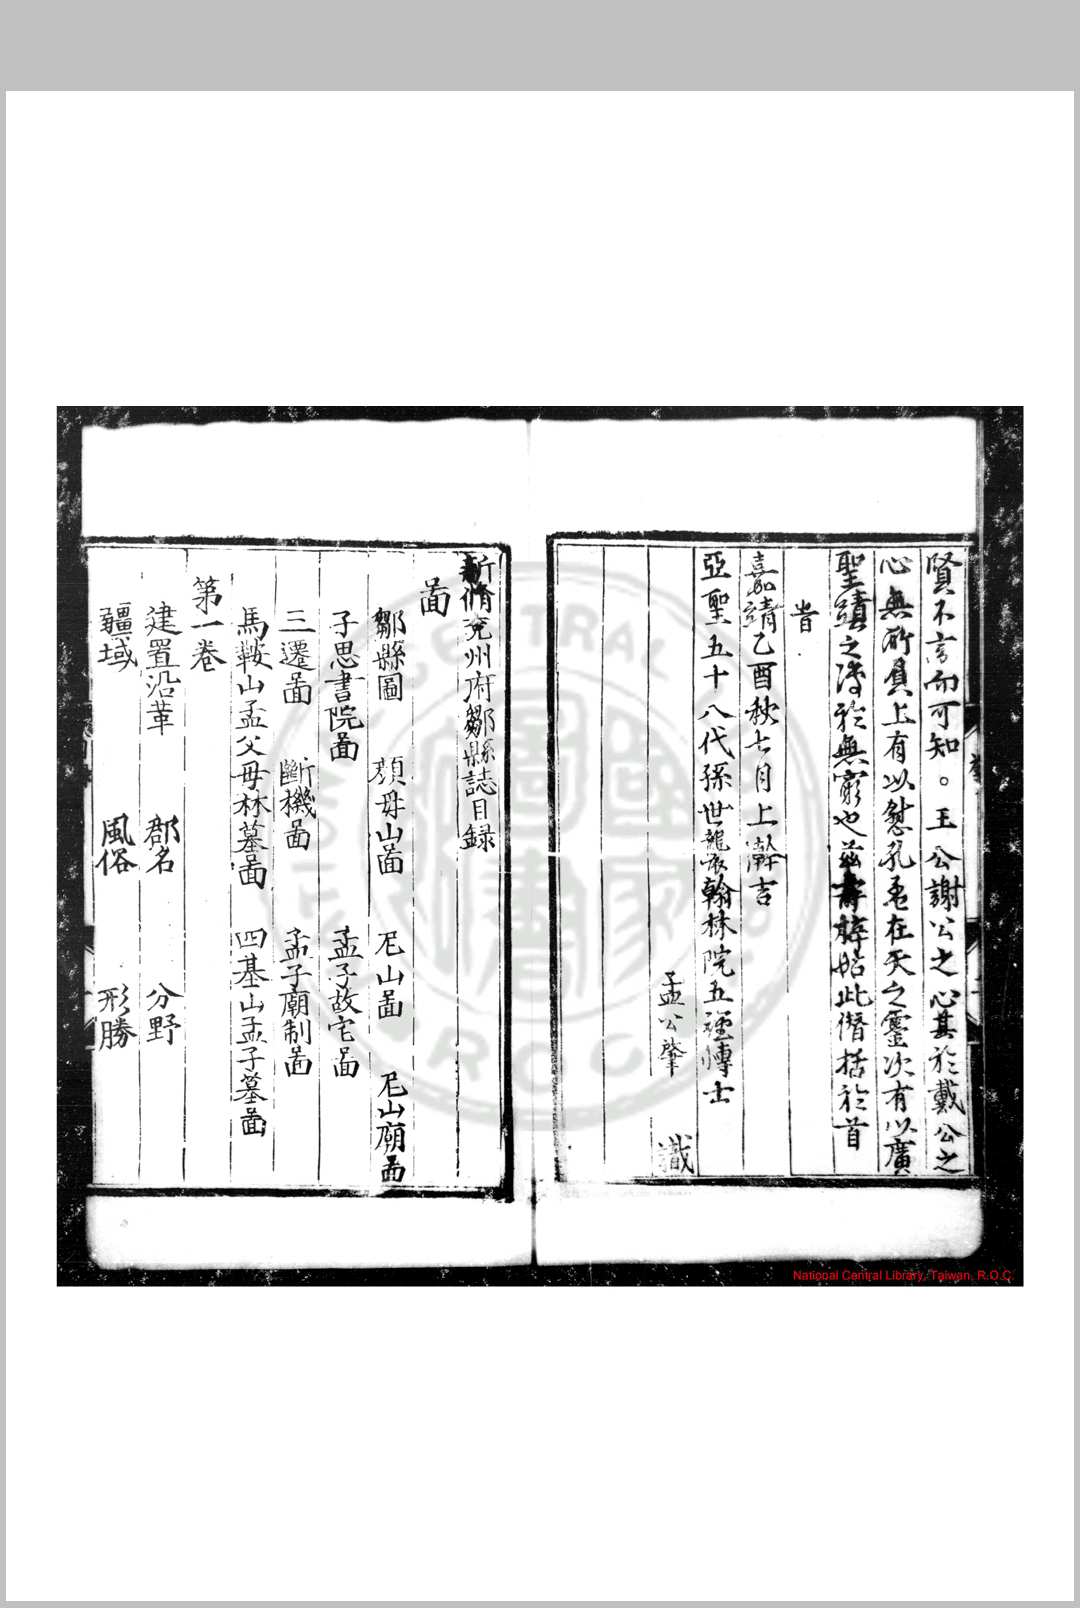 賢不言而可知。王公謝公之心其於戴公之
心無所負上有以慰孔孟在天之靈次有以廣
聖蹟之傳於無窮也茲書將始此僭括於首
旹
嘉靖乙酉秋七月上澣吉
亞聖五十八代孫世襲翰林院五經博士
孟公肇 識
新脩兖州府鄒縣誌目録
啚
鄒縣圖 顔母山啚 尼山啚 尼山廟啚
子思書院啚 孟子故宅啚
三遷啚 斷機啚 孟子廟制啚
馬鞍山孟父母林墓啚 四基山孟子墓啚
第一卷
建置沿革 郡名 分野
疆域 風俗 形勝
National Central Library, Taiwan, R.O.C.